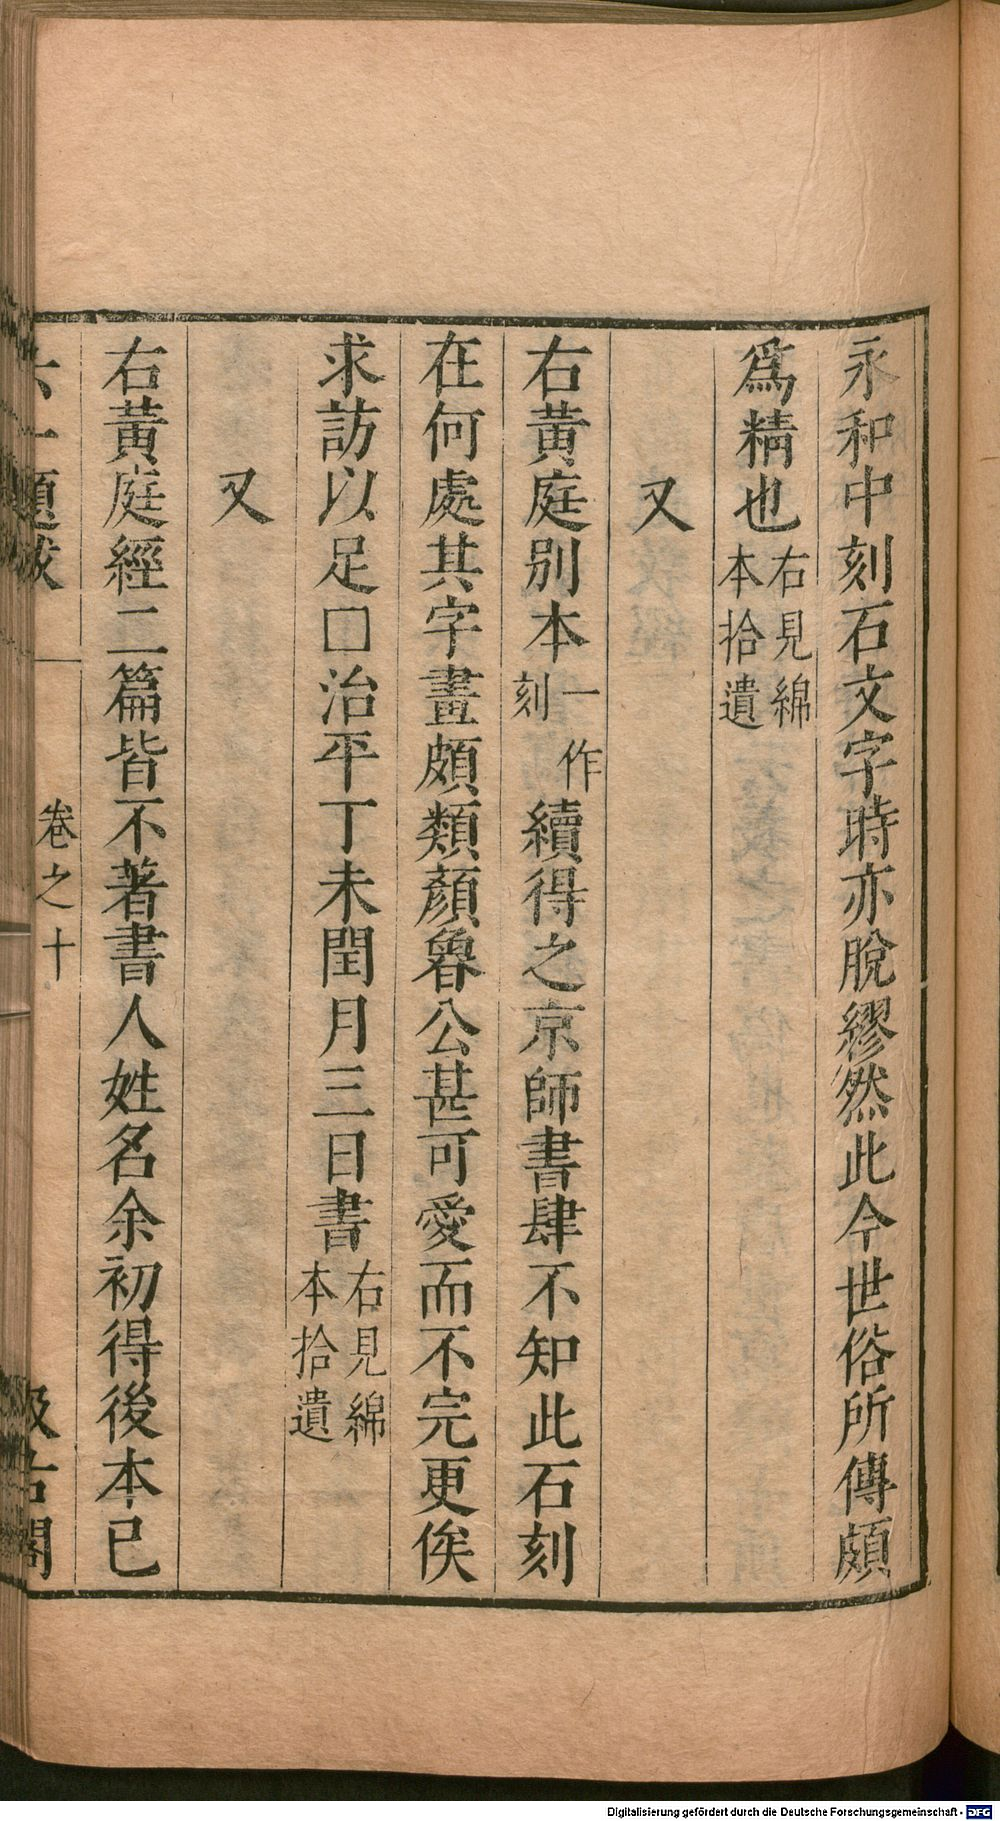 永和中刻石文字時亦脫繆然此今世俗所傳頗
爲精也右見綿本拾遺
又
右黃庭別本一作刻續得之京師書肆不知此石刻
在何處其字畫頗類顏魯公甚可愛而不完更俟
求訪以足□治平丁未閏月三日書右見綿本拾遺
又
右黃庭經二篇皆不著書人姓名余初得後本已
六一題跋 卷之十 汲古閣
Digitalisierung gefördert durch die Deutsche Forschungsgemeinschaft - DFG